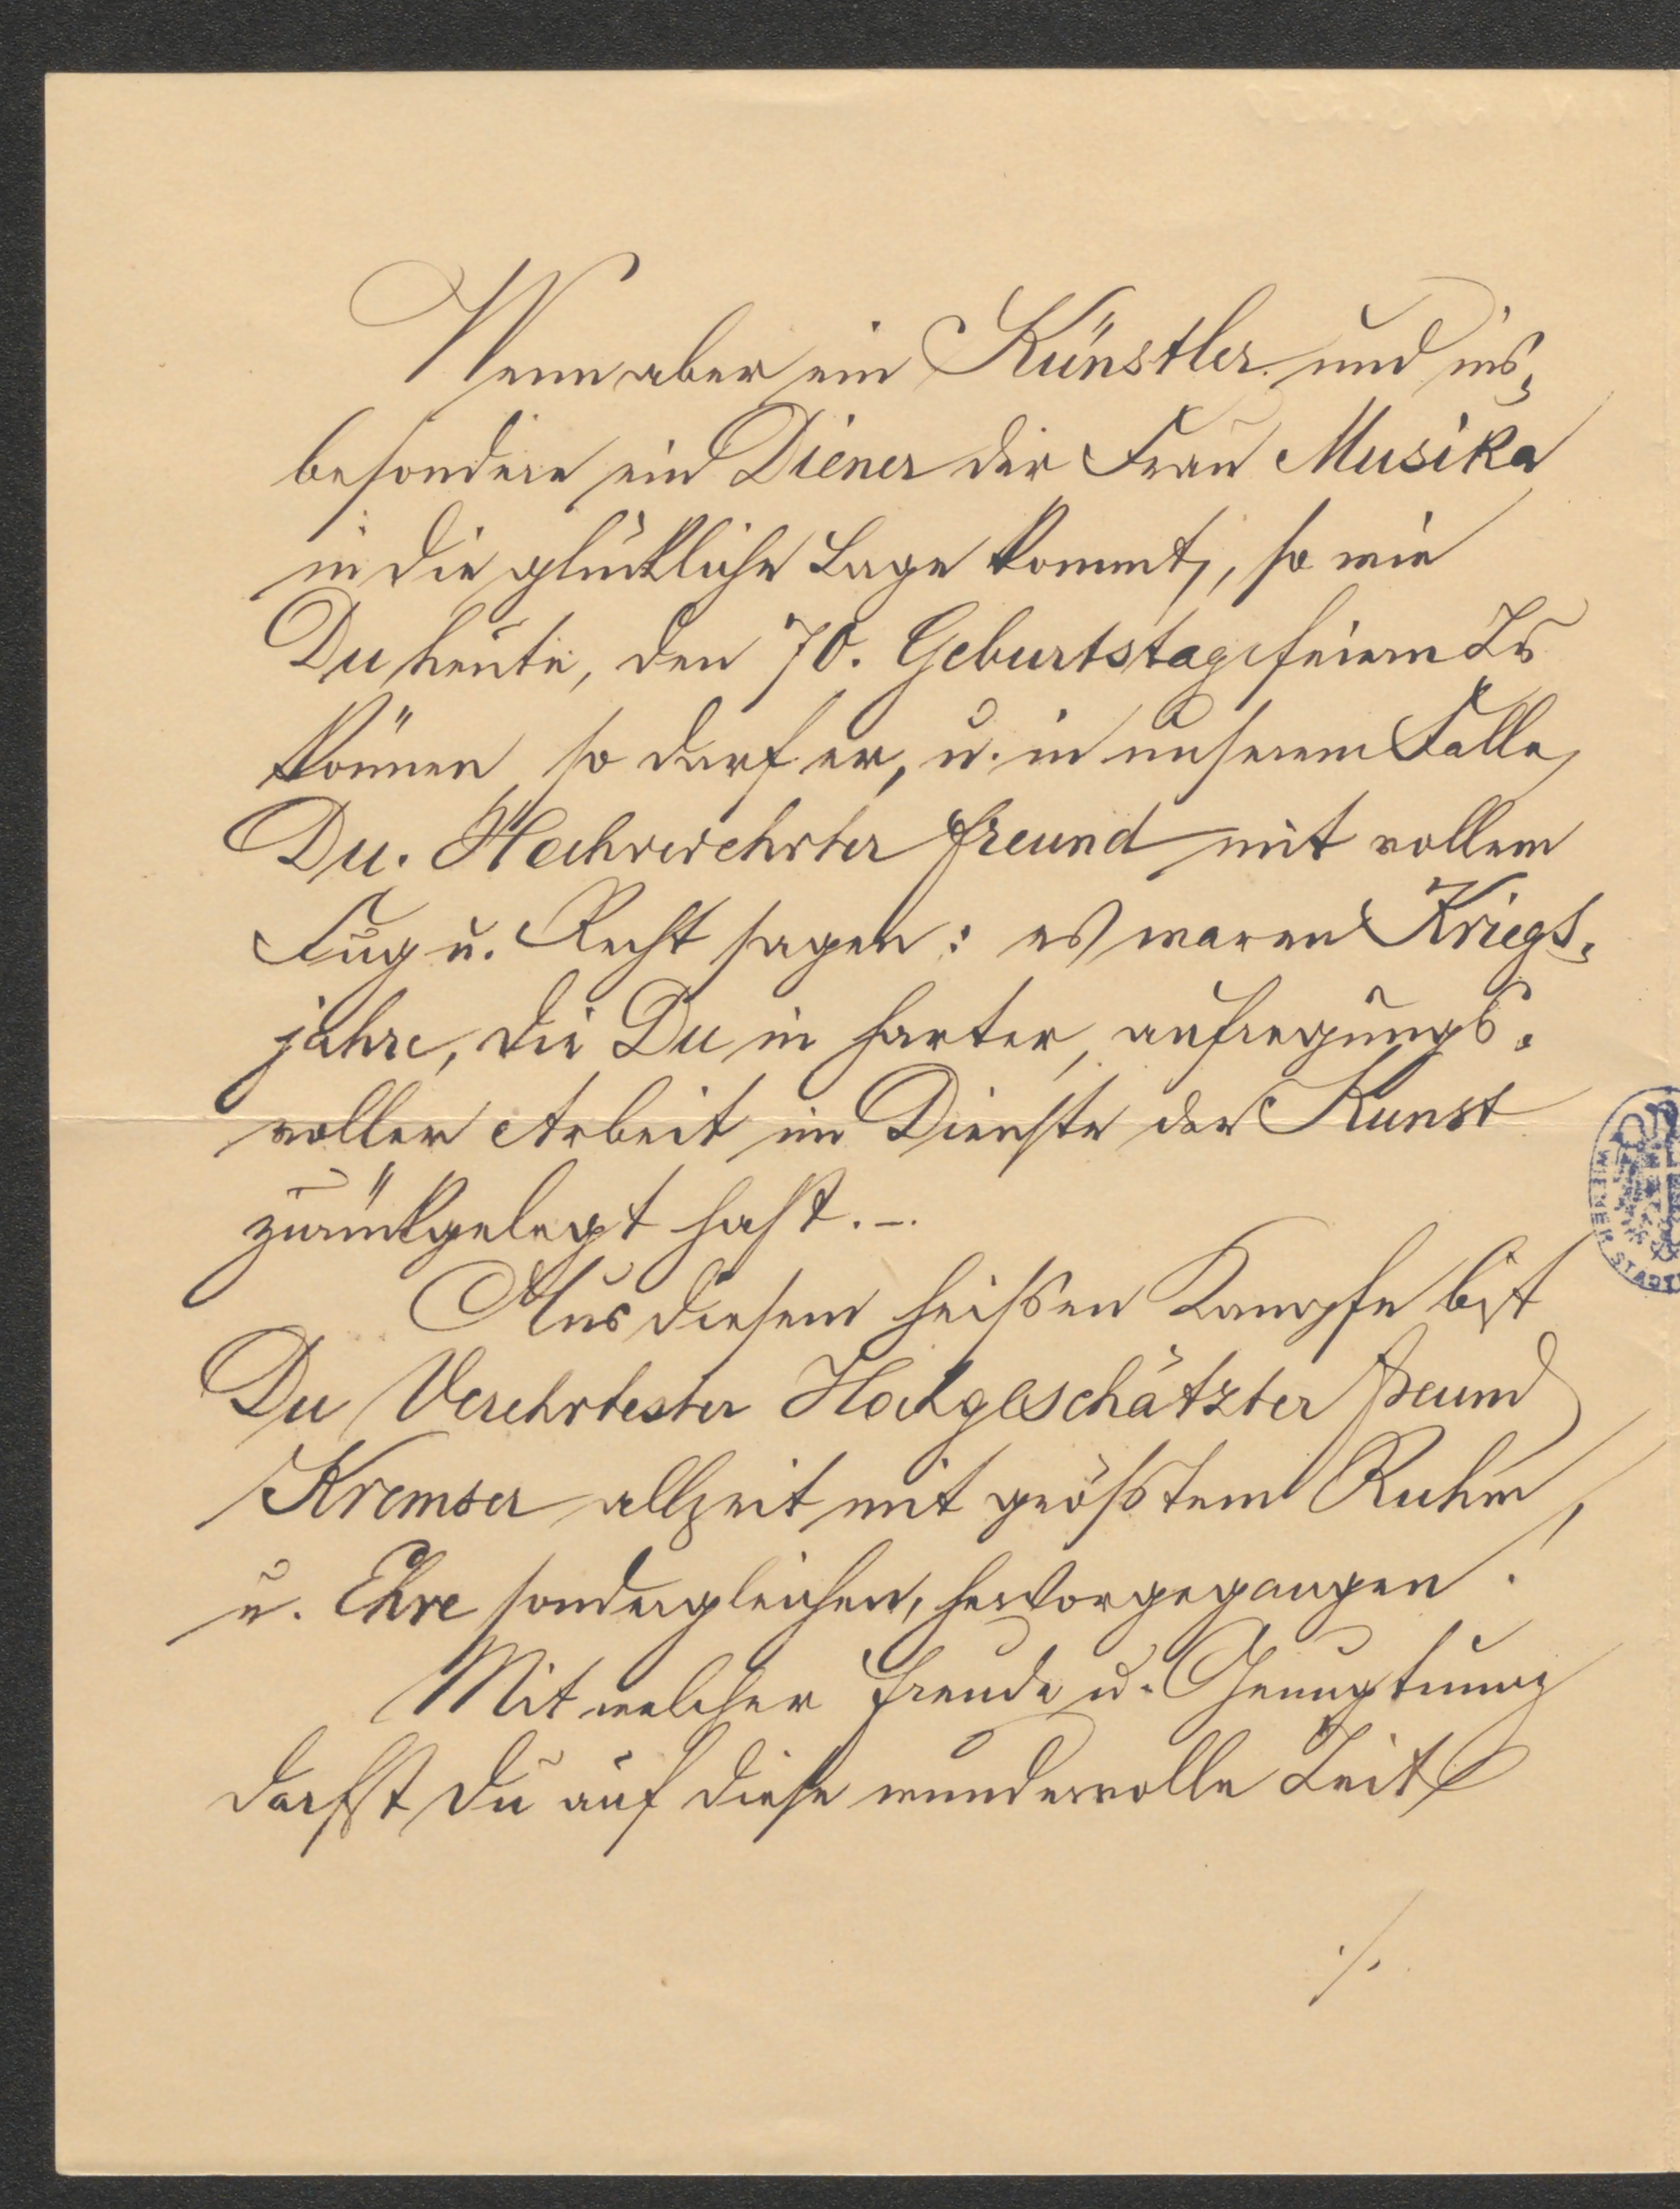 Wenn aber ein Künstler und ins-
besondere ein Diener der Frau Musika
in die glückliche Lage kommt, so wie
Du heute, den 70. Geburtstag feiern zu
können, so darf er, u. in unserem Falle
Du. Hochverehrter Freund mit vollem
Fug u. Recht sagen: es waren Kriegs-
jahre, die Du in harter, aufregungs-
voller Arbeit im Dienste der Kunst
zurückgelegt hast. –.
Aus diesem heißen Kampfe bist
Du Verehrtester Hochgeschätzter Freund
Kremser allzeit mit größtem Ruhm,
u. Ehre sondergleichen, hervorgegangen!
Mit welcher Freude u. Genugtuung
darfst Du auf diese wundervolle Zeit
./.
WIENER STADT